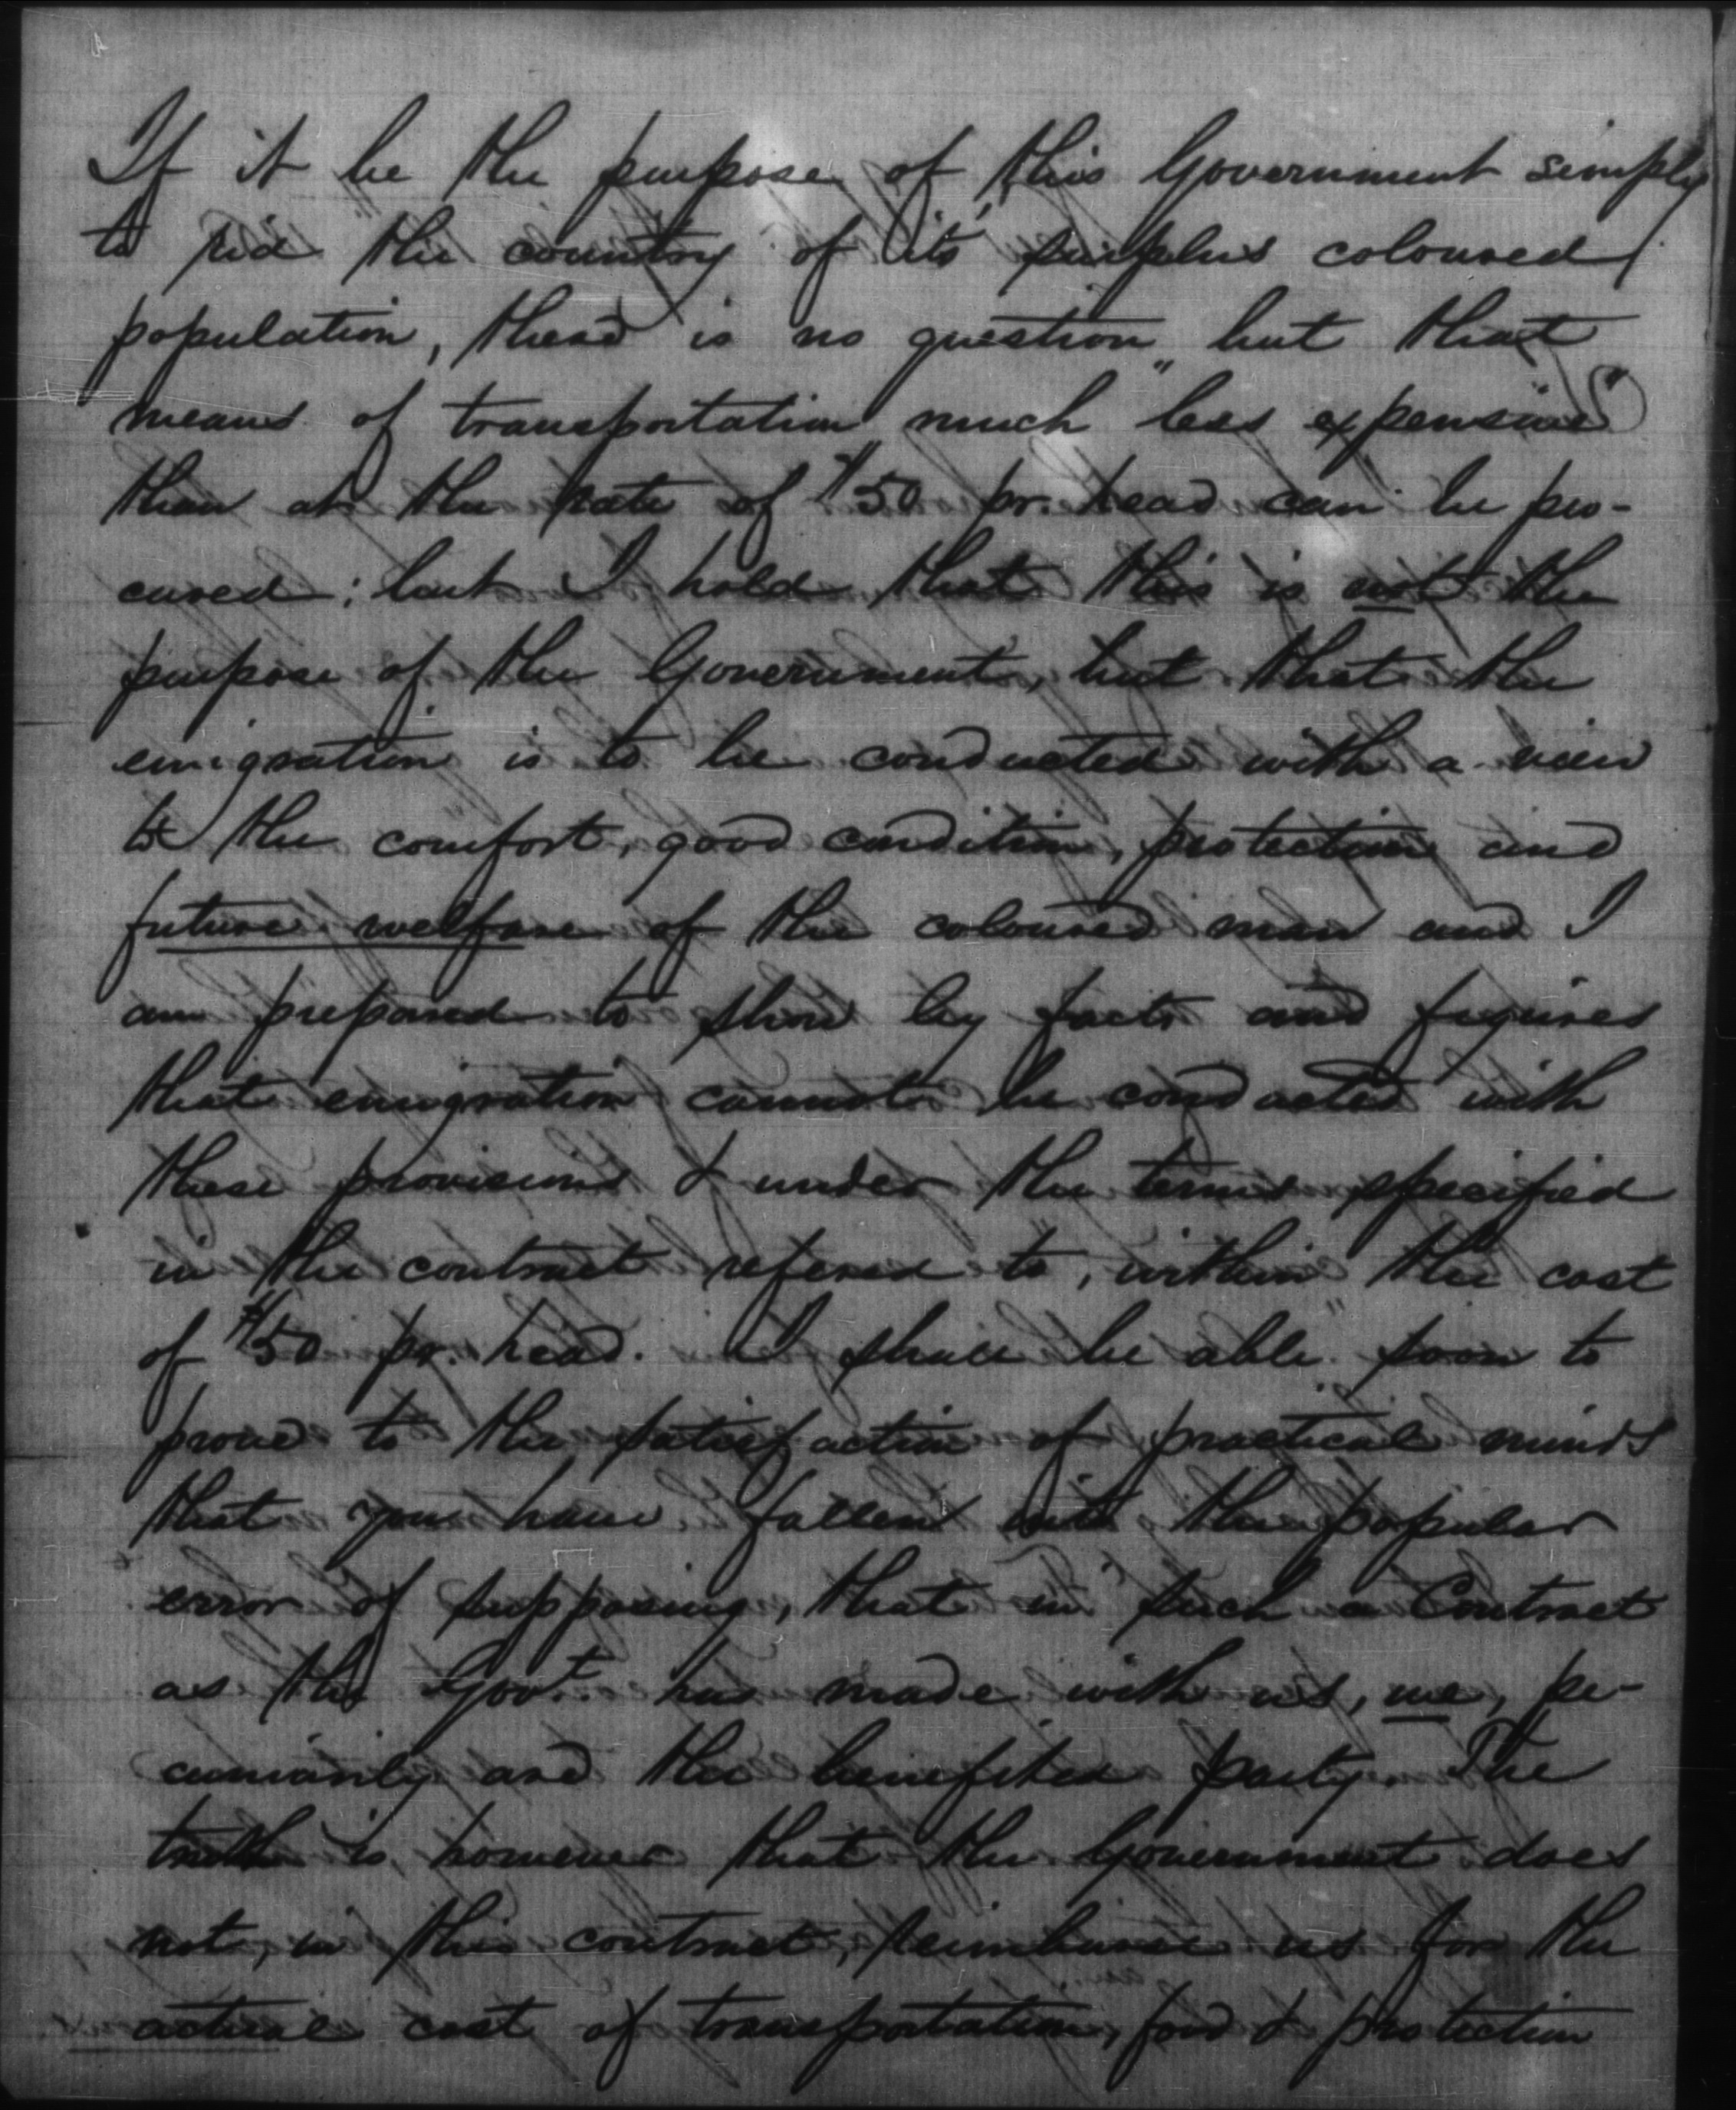 If it be the purpose of this Government simply
to rid the country of its' surplus coloured
population, there is no question but that
means of transportation much less expensive
than at the rate of $50 pr. head can be pro-
cured; but I hold that this is not the
purpose of the Government, but that the
emigration is to be conducted with a view
to the comfort, good condition, protection and
future welfare of the coloured man and I
am prepared to show by facts and figures
that emigration cannot be conducted with
these provisions & under the terms specified
in the contract refered to, within the cost
of $50 pr. head. I shall be able soon to
prove to the satisfaction of practical minds
that you have fallen into the popular
error of supposing, that in such a Contract
as the Govt. has made with us, we, pe-
cuniarily are the benefited party. The
truth is however that the Government does
not, in this contract, reimburse us for the
actual cost of transportation, food & protection